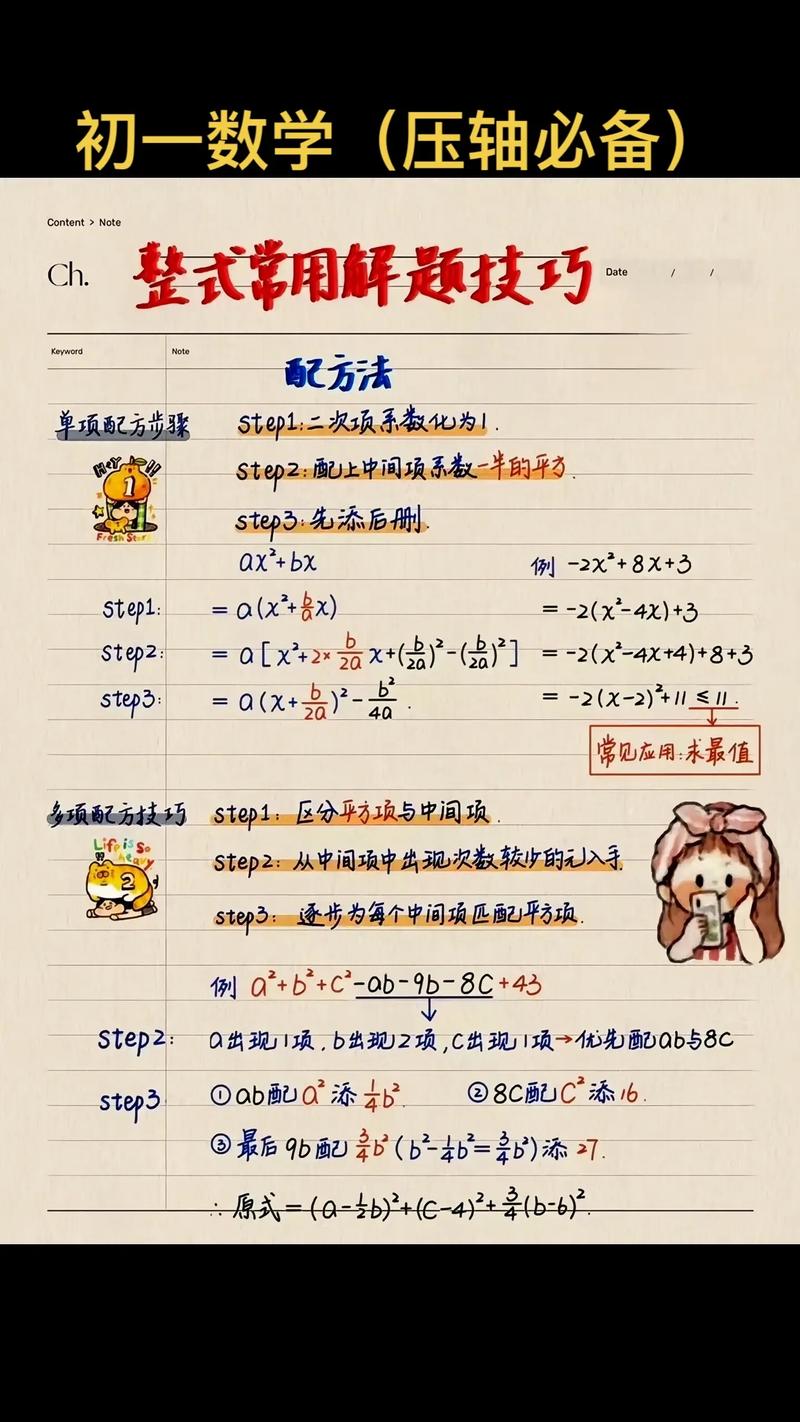 初一数学（压轴必备）
Content > Note
Ch. 整式常用解题技巧 Date / /
Keyword Note
配方法
单项配方步骤 step1:二次项系数化为1.
step2:配上中间项系数一半的平方.
step3:先添后删.
Hey !!
1
Fresh Start
ax²+bx 例 -2x²+8x+3
step1: = a(x²+\frac{b}{a}x) = -2(x²-4x)+3
step2: = a[x²+2×\frac{b}{2a}x+(\frac{b}{2a})²-(\frac{b}{2a})²] = -2(x²-4x+4)+8+3
step3: = a(x+\frac{b}{2a})²-\frac{b²}{4a}. = -2(x-2)²+11 ≤ 11.
常见应用:求最值
多项配方技巧 step1: 区分平方项与中间项.
Life is So
heavy
2
step2: 从中间项中出现次数较少的元入手.
step3: 逐步为每个中间项匹配平方项.
例 a²+b²+c²-ab-9b-8c+43
step2: a出现1项,b出现2项,c出现1项→优先配ab与8c
step3: ①ab配a²添\frac{1}{4}b². ②8c配c²添16.
③最后9b配\frac{3}{4}b²(b²-\frac{1}{4}b²=\frac{3}{4}b²)添27.
∴原式=(a-\frac{1}{2}b)²+(c-4)²+\frac{3}{4}(b-6)².